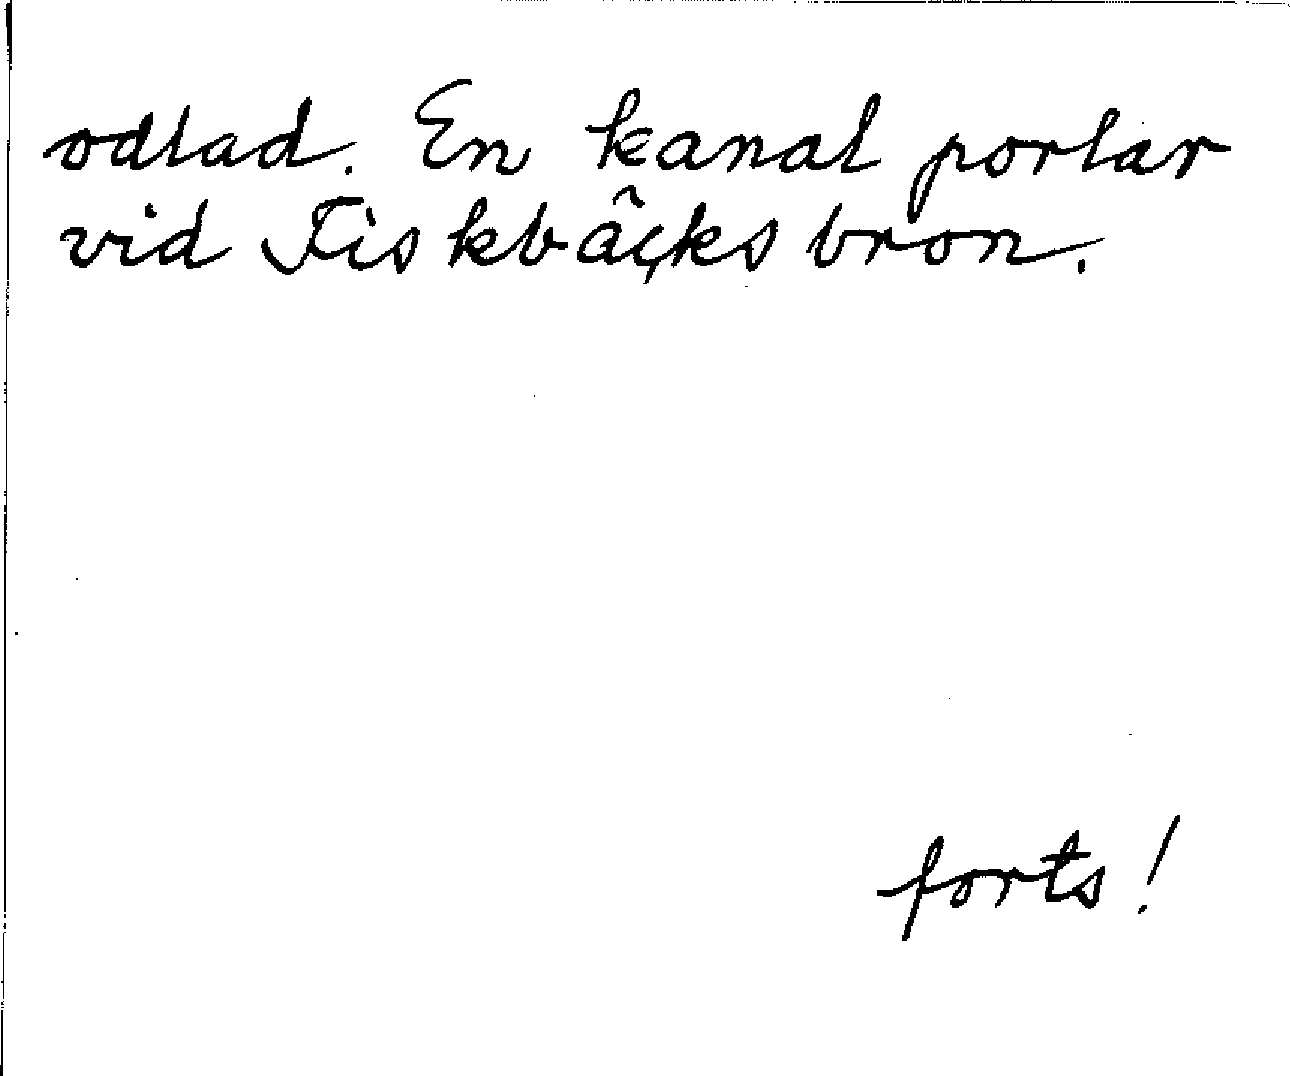 odlad. En kanal porlar
vid Fiskbäcksbron.
forts!